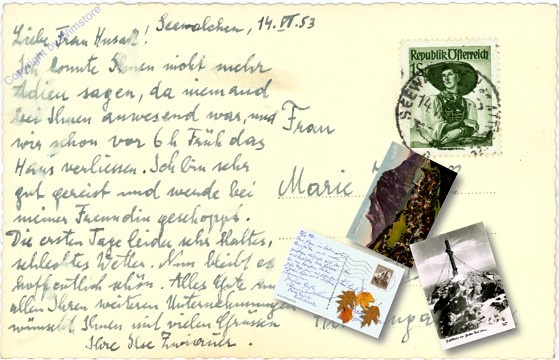 Seewalchen, 14.VII.53
Liebe Frau Husak!
Ich konnte Ihnen nicht mehr
Adieu sagen, da niemand
bei Ihnen anwesend war, und
wir schon vor 6 h Früh das
Haus verliessen. Ich bin sehr
gut gereist und werde bei
meiner Freundin geschoppt.
Die ersten Tage leider sehr kaltes,
schlechtes Wetter. Nun bleibt es
hoffentlich schön. Alles Gute zu
allen Ihren weiteren Unternehmungen
wünscht Ihnen mit vielen Grüssen
Ihre Ilse
Republik Österreich
1S
Frau
Marie
Copyright by Filmstore